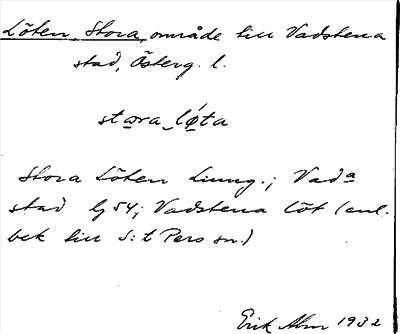 Löten, Stora, område till Vadstena
stad, Österg. l.
stǫra lǿta
Stora Löten Ljung.; Vadª
stad lj 54; Vadstena löt (anl.
bek till S:t Pers sn.)
Erik Alm 1932